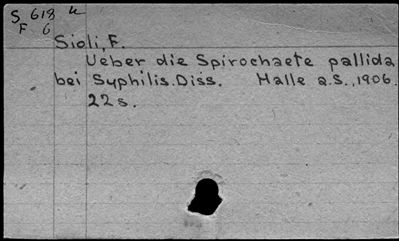 S 618 k
F 6
Sioli, F.
Ueber die Spirochaete pallida
bei Syphilis. Diss. Halle a.S., 1906.
22 s.